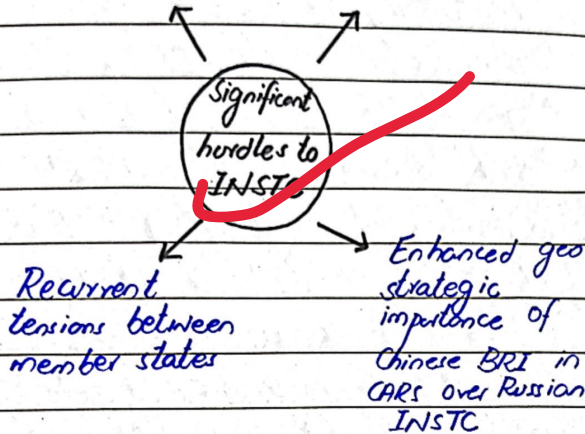 Significant
hurdles to
INSTC
Recurrent
tensions between
member states
Enhanced geo
strategic
importance of
Chinese BRI in
CARs over Russian
INSTC